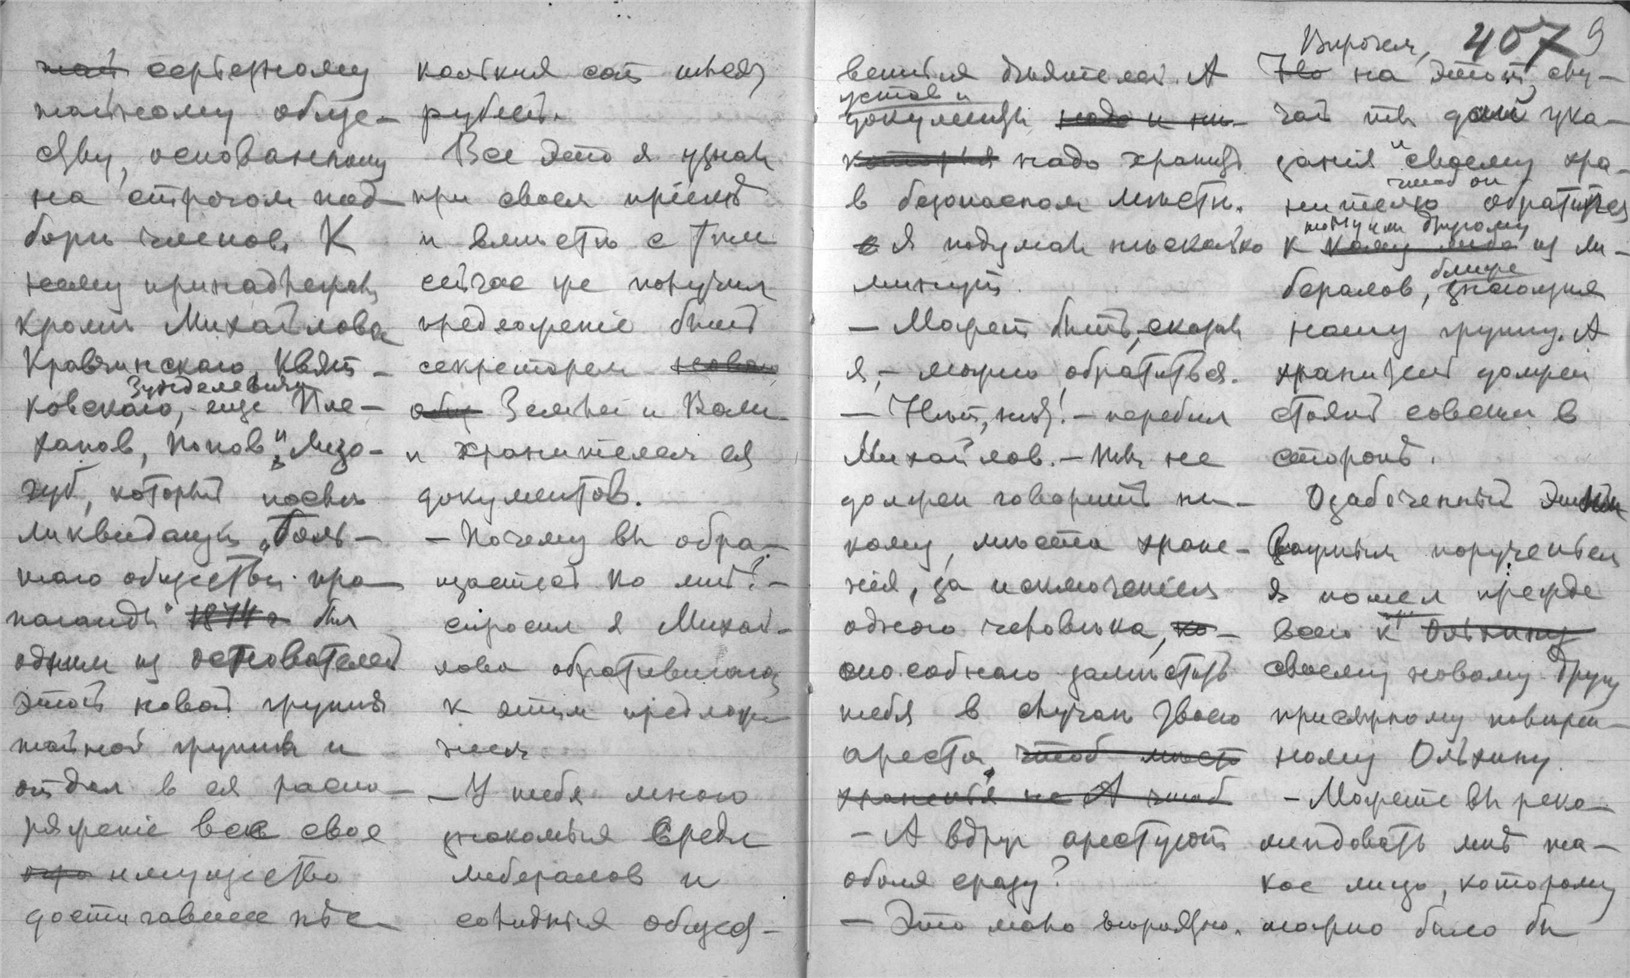 ~~той~~ серьезному
тайному обще-
ству, основанному
на строгом под-
боре членов. К
нему принадлежали
кроме Михайлова
Кравчинскаго, Квят-
Зунделевича
ковскаго, еще Пле-
ханов, Попов и Лизо-
губ, который после
ликвидации „Боль-
шого общества про-
паганды“ ~~1874 г~~ был
одним из основателей
этой новой группы
тайной группы и
отдал в ея распо-
ряженіе все свое
имущество
достигавшее нѣс-
колькия сот тысяч
рублей.
Все это я узнал
при своем пріемѣ
и вместе с тем
сейчас же получил
предложеніе быть
секретарем ~~новаго~~
~~общ~~ Земли и Воли
и хранителем ея
документов.
– Почему вы обра-
щаетесь ко мнѣ? –
спросил я Михай-
лова обратившагося
к этим предложе-
нием.
– У тебя много
знакомыя среди
либералов и
солидныя общест-
венныя дѣятелей. А
устав и
документы ~~надо и ни-~~
~~которыя~~ надо хранить
в безопасном мѣсте.
~~в~~ Я подумал нѣсколько
минут.
– Может быть, сказал
я, – можно обратиться.
– Нѣт, нѣт! – перебил
Михайлов. – Ты не
должен говорить ни-
кому, мѣста хране-
нія, за исключеніем
одного человѣка, ~~ко-~~
способнаго замѣстить
тебя в случаѣ твоего
ареста, ~~чтоб мѣсто~~
~~храненья не А чтоб~~
– А вдруг арестуют
обоих сразу?
– Это мало вѣроятно.
407 9
Впрочем,
~~Но~~ на этот слу-
чай ты дай ука-
занія и своему хра-
чтоб он
нителю обратиться
тому или другому
к ~~кому либо~~ из ли-
ближе
бералов, знающия
нашу группу. А
хранитель должен
стоять совсем в
стороне.
Озабоченный этим
важным порученьем
я пошел прежде
всего к ~~Ольхину~~
своему новому другу
присяжному повѣрен-
ному Ольхину.
– Можете вы реко-
мендовать мнѣ та-
кое лицо, которому
можно было бы